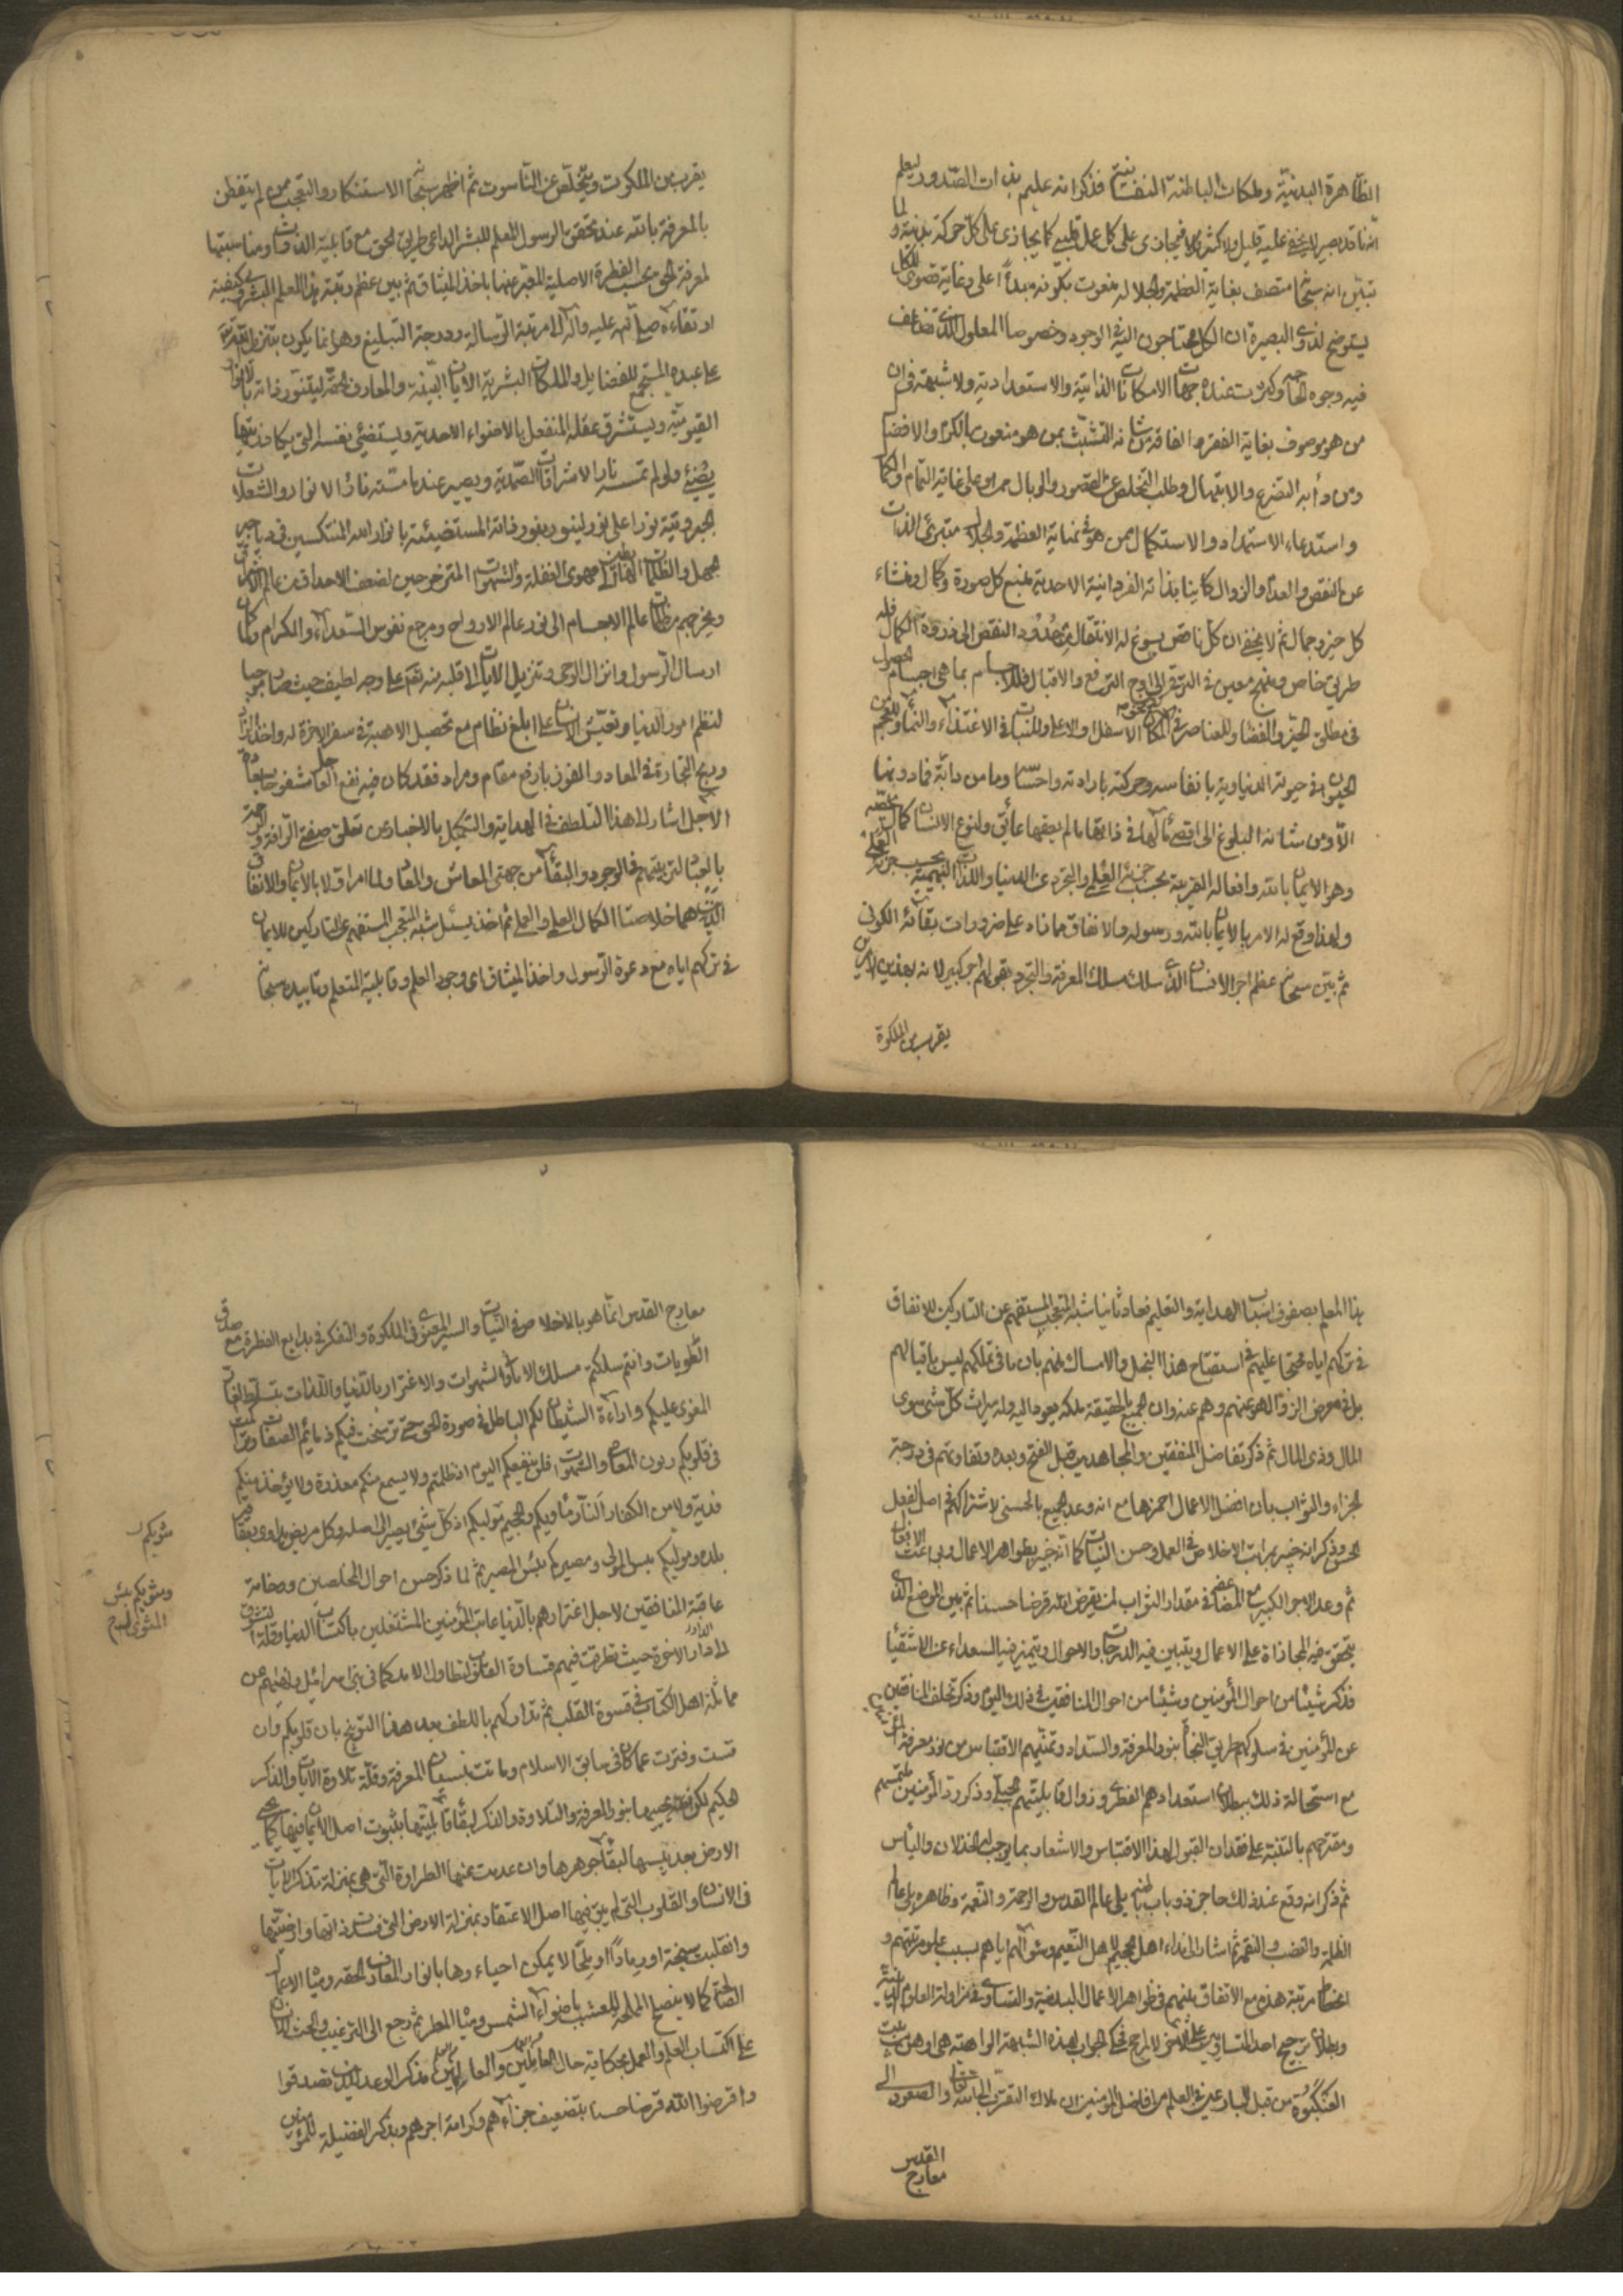 الظاهرة البدنية وملكات الباطنة النفسانية فذكر انه عليم بذات الصدور ليعلم
انه ناقد بصير لا يخفى عليه قليل ولا كثير فيجازى على كل عمل قلبى كما يجازى على كل حركة بدنية ولما
تبين انه سبحانه متصف بغاية العظمة والجلالة منعوت بكونه مبدأ اعلى وغاية قصوى للكل
يستوضح لذوى البصيرة ان الكل محتاجون اليه فى الوجود وخصوصا المعلول الذى تضاعف
فيه وجوه الحاجة وكثرت عنده جهات الامكانات الذاتية والاستعدادية ولا شبهة فى ان
من هو موصوف بغاية الفقر والفاقة من شانه التشبث بمن هو منعوت بالكرم والافضال
ومن دأبه التضرع والابتهال وطلب التخلص عن القصور والوبال ممن هو على غاية التمام والكمال
واستدعاء الاستمداد والاستكمال ممن هو فى نهاية العظمة والجلال متبرئ الذات
عن النقص والعدم والزوال كاينا بذاته الفردانية الاحدية منبع كل صورة وكمال ومنشاء
كل خير وجمال ثم لا يخفى ان كل ناقص يسوغ له الانتقال من حدود النقص الى ذروة الكمال فله
طريق خاص ومنهج معين فى الترقى الى اوج الترفع والاقبال فللاجسام بما هى اجسام الحصول
فى مطلق الحيز والفضا وللعناصر فى المكان الاسفل او الاعلى وللنبات فى الاغتذاء والنماء وللعجم من
الحيوان فى حيوته الدنياوية بانفاسه وحركته بارادته واحساسه وما من دابة فما دونها
الا ومن شانه البلوغ الى اقصى مآلها فى ذاتها ما لم يعقها عائق ولنوع الانسان كمال خصه
وهو الايمان بالله وافعاله القريبة بحسب جزئه العلمى والتجرد عن الدنيا واللذات البهيمية بحسب جزئه العملى
ولهذا وقع له الامر بالايمان بالله ورسوله والانفاق مما زاد على ضرورات بقائه الكونى
ثم بين سبحانه عظم اجر الانسان الذى سلك مسلك المعرفة والتجرد بقوله لهم اجر كبير لانه بهذين الامرين
يقرب من الملكوة
يقرب من الملكوت ويتخلص عن الناسوت ثم اظهر سبحانه الاستنكار والتعجب من لم يتفطن
بالمعرفة بالله عند تحقق الرسول المعلم للبشر الداعى طريق الحق مع قابلية الذات ومناسبتها
لمعرفة الحق بحسب الفطرة الاصلية المعبر عنها باخذ الميثاق ثم بين عظم رتبة هذا المعلم البشرى وكيفية
ارتقاءه صلى الله عليه وآله الى مرتبة الرسالة ودرجة التبليغ وهو انما يكون بتنزيل الله
على عبده المستجمع للفضايل والملكات البشرية الآيات البينة والمعارف الحقة ليتنور ذاته بالانوار
القيومية ويستشرق عقله المنفعل بالاضواء الاحدية ويستضئ نفسه التى يكاد زيتها
يضئ ولو لم تمسسه نار الاشراقات الصمدية ويصير عند ما مسته نار الانوار والشعلات
الجبروتية نورا على نور لينور بنور ذاته المستضيئة بانوار الله المنتكسين فى دياجير
الجهل والظلمات الهابطين الى مهوى الغفلة والشهوات المتزحزحين لضعف الاحداق عن عالم الانوار
ويخرجهم من ظلمات عالم الاجسام الى نور عالم الارواح ومرجع نفوس السعداء والكرام ولما كان
ارسال الرسول وانزال الوحى وتنزيل الآيات الى قلبه منه تعالى على وجه لطيف حيث صار موجبا
لنظم امور الدنيا وتعيش الانسان على ابلغ نظام مع تحصيل الاهبة فى سفر الآخرة له واخذ الزاد
وربح التجارة فى المعاد والفوز بارفع مقام ومراد فقد كان فيه نفع العاجل شفع بسعادة
الآجل اشار الى هذا التلطف فى الهداية والتكميل بالاخبار عن تعلق صفة الرافة والرحمة
بالعباد لتربيتهم فى الوجود والبقاء من جهتى المعاش والمعاد ولما امر اولا بالايمان والانفاق
الذين هما خلاصتا الكمال العلمى والعملى ثم اخذ يسئل شبه المتعجب المستفهم عن التاركين للايمان
فى تركهم اياه مع دعوة الرسول واخذ الميثاق اى وجود العلم وقابلية المتعلم وتاييده سبحانه
هذا المعلم بصفوف اسباب الهداية والتعليم فعاد ثانيا شبه المتعجب المستفهم عن التاركين للانفاق
فى تركهم اياه محتجا عليهم فى استقباح هذا البخل والامساك منهم بان ما فى تملكهم ليس باقيا لهم
بل فى معرض الزوال هو عنهم وهم عنه وان الجميع بالحقيقة ملكه يعود اليه وله ميراث كل شئ سوى
المال وذى المال ثم ذكر تفاضل المنفقين والمجاهدين قبل الفتح وبعده وتفاوتهم فى درجة
الجزاء والثواب بان افضل الاعمال احمزها مع انه وعد الجميع بالحسنى لاشتراكهم فى اصل الفعل
الحسن وذكر انه خبير بمراتب الاخلاص فى العمل وحسن النيات كما انه خبير بظواهر الاعمال وبواعث الافعال
ثم وعد الاجر الكبير مع المضاعفة فى مقدار الثواب لمن يقرض الله قرضا حسنا ثم بين الموضع الذى
يتحقق فيه المجازاة على الاعمال ويتبين فيه الدرجات والاحوال ويتميز فيه السعداء عن الاشقياء
فذكر شيئا من احوال المؤمنين وشيئا من احوال المنافقين فى ذلك اليوم وذكر تخلف المنافقين
عن المؤمنين فى سلوكهم طريق النجاة بنور المعرفة والسداد وتمنيهم الاقتباس من نور معرفة
مع استحالة ذلك ببطلان استعدادهم الفطرى وزوال قابليتهم الجبلى وذكر رد المؤمنين ملتمسهم
ومقترحهم بالتنبه على فقدان القبول لهذا الاقتباس والاشعار بما يوجب لهم الخذلان واليأس
ثم ذكر انه وقع عند ذلك حاجز ذو باب باطنه يلى عالم القدس والرحمة والنعمة وظاهره يلى عالم
الظلمة والغضب والنقمة ثم اشار الى نداء اهل الجحيم لاهل النعيم وسؤالهم اياهم بسبب علو مرتبتهم و
انحطاط مرتبة هذه مع الاتفاق بينهم فى ظواهر الاعمال البدنية والتساوى فى مزاولة العلوم الدينية
وبطلان ترجيح احد المتساويين على الآخر لا لمرجح فحكى الجواب لهذه الشبهة الواهية هى اوهن من بيت
العنكبوت من قبل البارعين فى العلم من افاضل المؤمنين ان ملاك التقرب الى الله والصعود الى
معارج القدس
معارج القدس انما هو بالاخلاص فى النيات والسير المعنوى فى الملكوة والتفكر فى بدايع الفطرة مع صدق
الطويات وانتم سلكتم مسلك الامانى والشهوات والاغترار بالدنيا واللذات بتسلط الهوى
المغوى عليكم واراءة الشيطان لكم الباطل فى صورة الحق حتى ترسخت فيكم ذمائم الصفات وتراكمت
فى قلوبكم ريون المعاصى والشهوات فلن ينفعكم اليوم اذ ظلمتم ولا يسمع منكم معذرة ولا يؤخذ منكم
فدية ولا من الكفار النار مأويكم والجحيم موليكم اذ كل شئ يصير الى اصله وكل مريض يداوى
بلده وموليكم بئس المولى ومصيركم بئس المصير ثم لما ذكر حسن احوال المخلصين ووخامة
عاقبة المنافقين لاجل اغترارهم بالدنيا عاتب المؤمنين المشتغلين باكتساب الدنيا وقلة التشوق
الى دار الآخرة حيث تطرقت فيهم قساوة القلوب لتطاول الامد كما فى بنى اسرائيل ونهيهم عن
مماثلة اهل الكتاب فى قسوة القلب ثم تداركهم باللطف بعد هذا التوبيخ بان قلوبكم وان
قست وفترت عما كان فى سابق الاسلام وماتت بنسيان المعرفة وقلة تلاوة الآيات والذكر
الحكيم لكن الله يحييها بنور المعرفة والتلاوة والذكر لبقاء قابليتها بثبوت اصل الايمان فيها كما يحيى
الارض بعد يبسها لبقاء جوهرها وان عدمت عنها الطراوة التى هى بمنزلة تذكر الآيات
فى الانسان والقلوب التى لم يبق فيها اصل الاعتقاد بمنزلة الارض التى فسدت ذاتها وارضيتها
وانقلبت سبخة او رمادا او ملحا لا يمكن احياءها بانوار المعارف الحقة ومياه الاعمال
الصالحة كما لا ينضج الملح للعشب باضواء الشمس ومياه المطر ثم رجع الى الترغيب والحث
على اكتساب العلم والعمل بحكاية حال العاملين والعارفين فذكر الوعد للذين تصدقوا
واقرضوا الله قرضا حسنا بتضعيف جزاءهم وكرامة اجرهم وبذكر الفضيلة للمؤمنين
مثويكم
ومثويكم بئس
المثوى